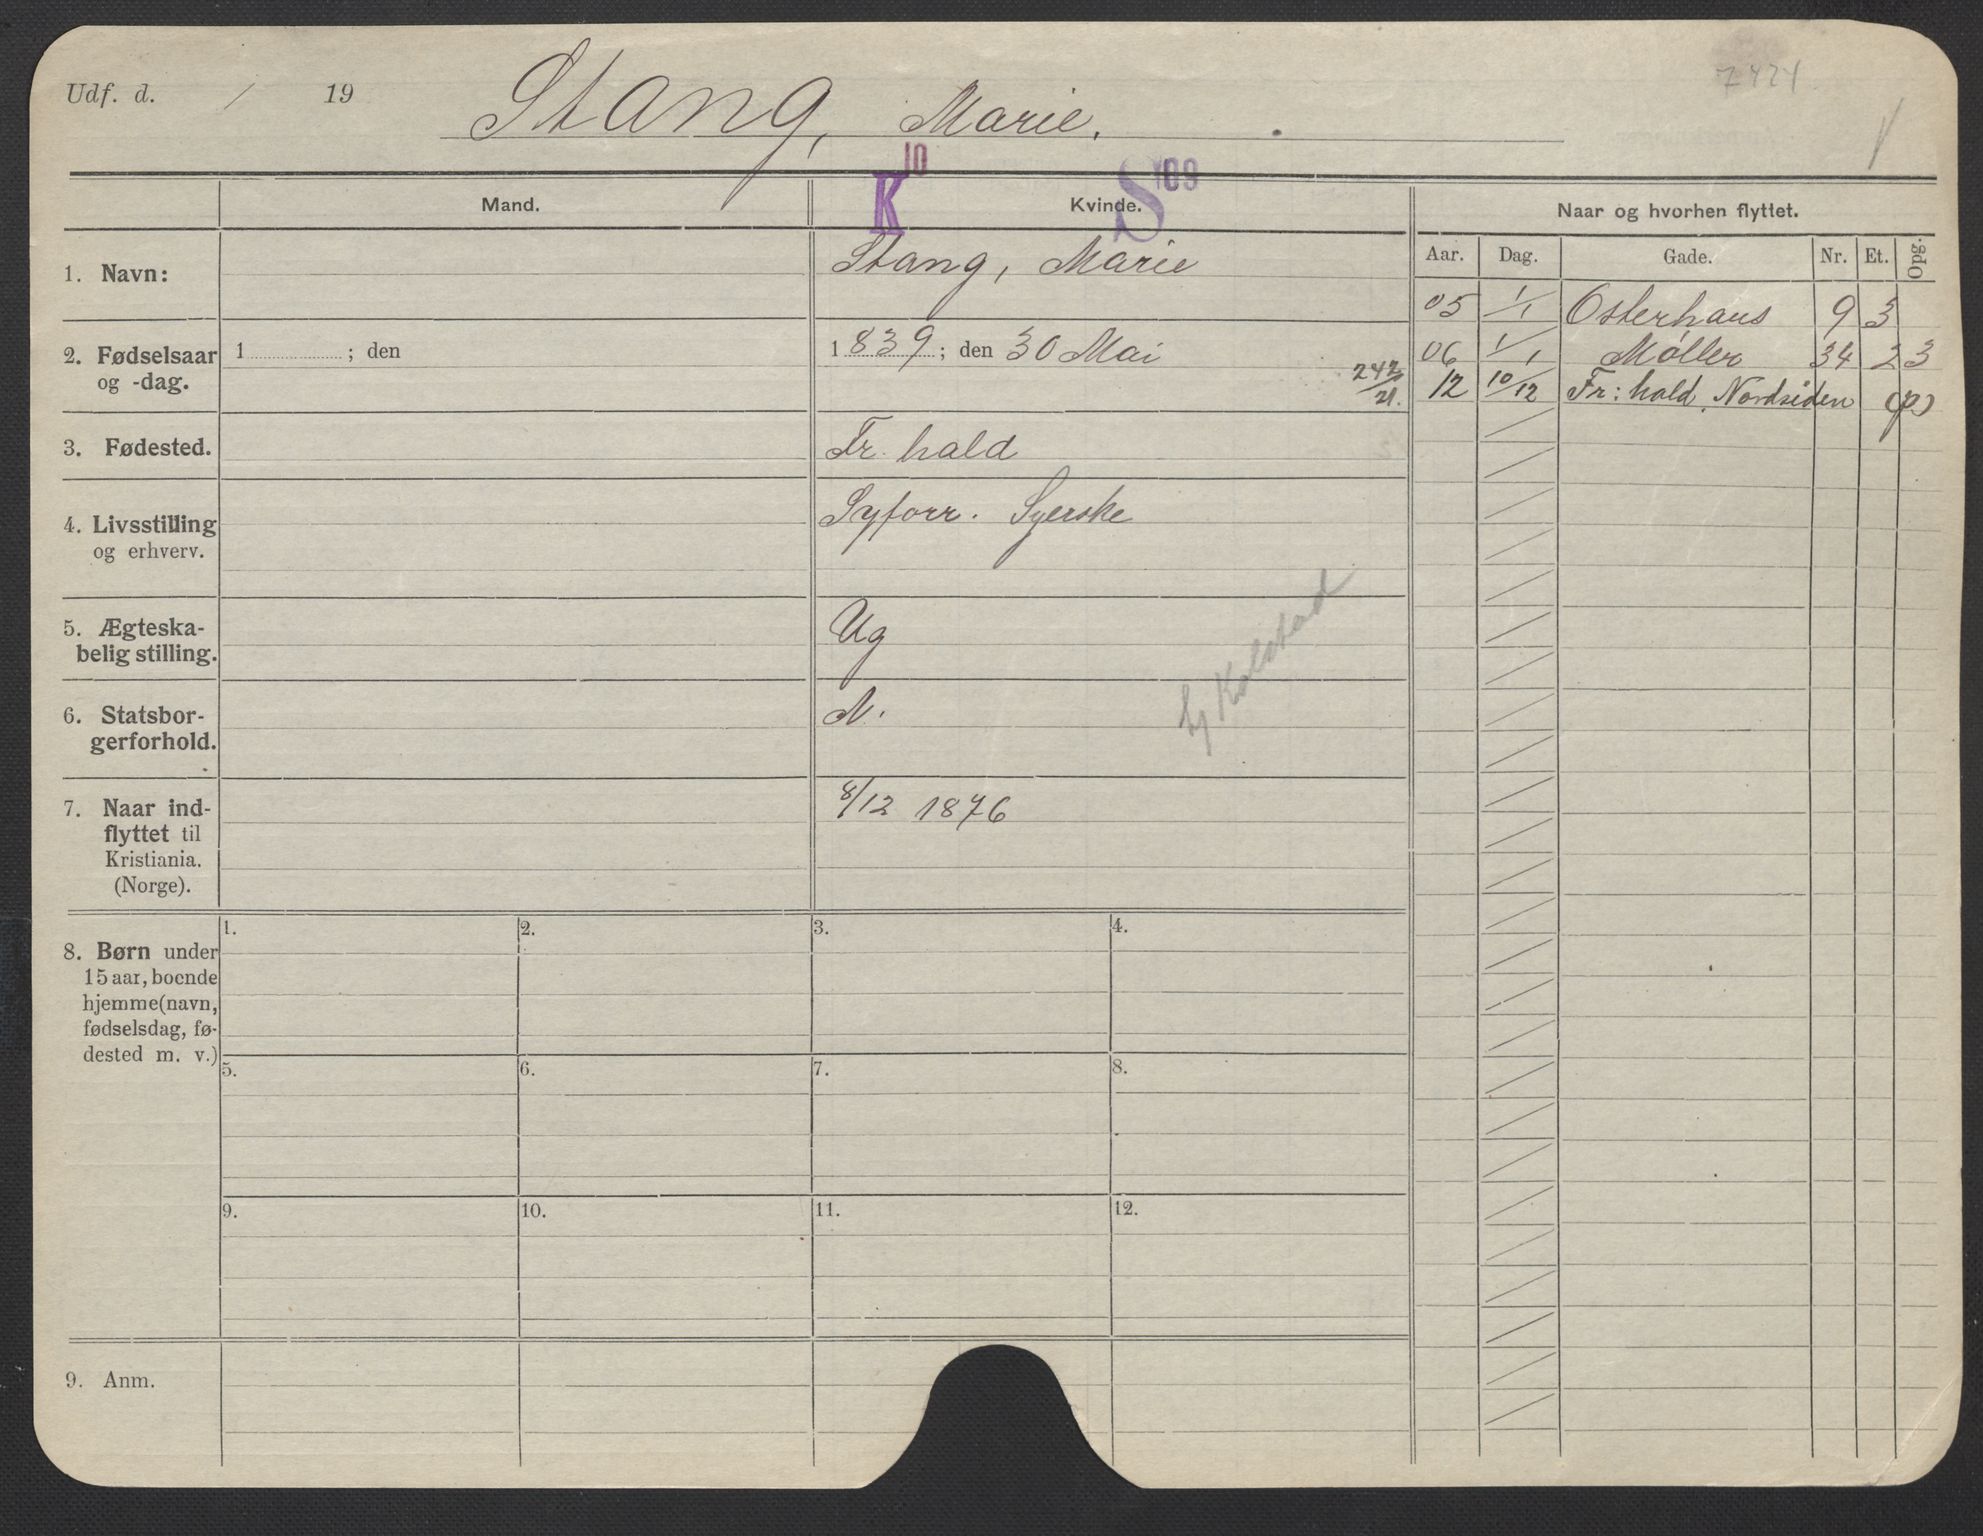 Udf. d. / 19 Stang, Marie.
K 10 S 109
Mand. Kvinde. Naar og hvorhen flyttet.
Aar. Dag. Gade. Nr. Et. Opg.
1. Navn: Stang, Marie
05 1/1 Osterhaus 9 3
2. Fødselsaar og -dag. 1 ; den 1839; den 30 Mai
06 1/1 Møller 34 2 3
242/21. 12 10/12 Fr: hald, Nordsiden (p)
3. Fødested. Fr. hald
4. Livsstilling og erhverv. Syforr. Syerske
5. Ægteska-
belig stilling. Ug
6. Statsbor-
gerforhold. N.
Kolstad
7. Naar ind-
flyttet til
Kristiania.
(Norge). 8/12 1876
8. Børn under
15 aar, boende
hjemme (navn,
fødselsdag, fø-
dested m. v.)
1. 2. 3. 4.
5. 6. 7. 8.
9. 10. 11. 12.
9. Anm.